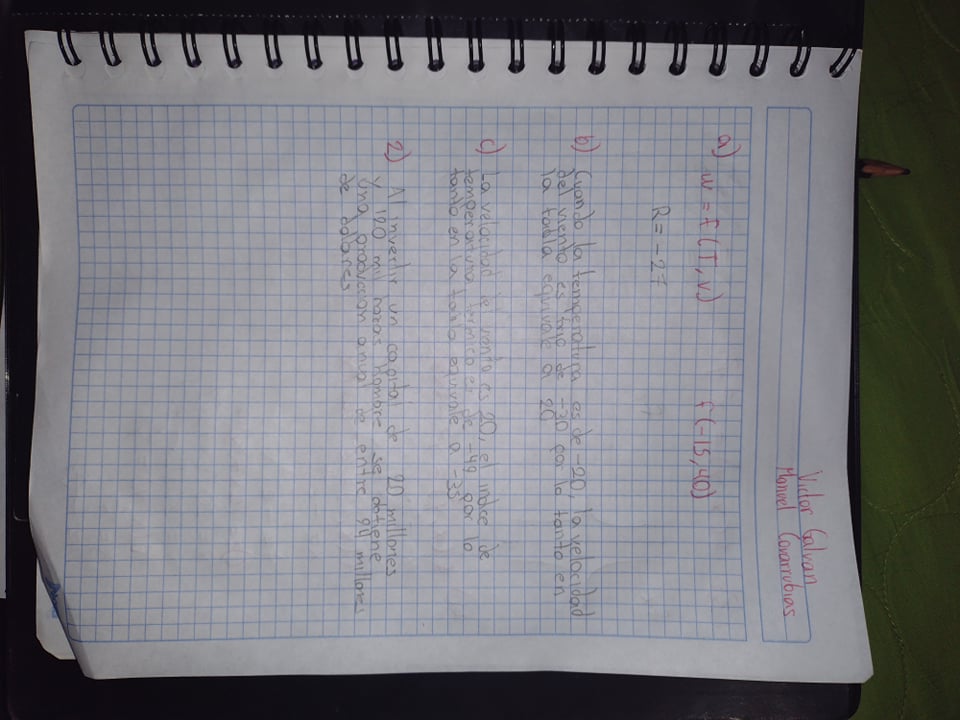 Victor Galvan
Manuel Covarrubias
a)
w = f (T, v) f (-15, 40)
R = -27
b) Cuando la temperatura es de -20, la velocidad
del viento es de -30 por lo tanto en
la tabla equivale a 20
c) La velocidad del viento es 20, el indice de
temperatura termico es de -49 por lo
tanto en la tabla equivale a -35
2) Al invertir un capital de 20 millones
y 120 mil horas hombre se obtiene
una produccion anual de entre 94 millones
de dolares